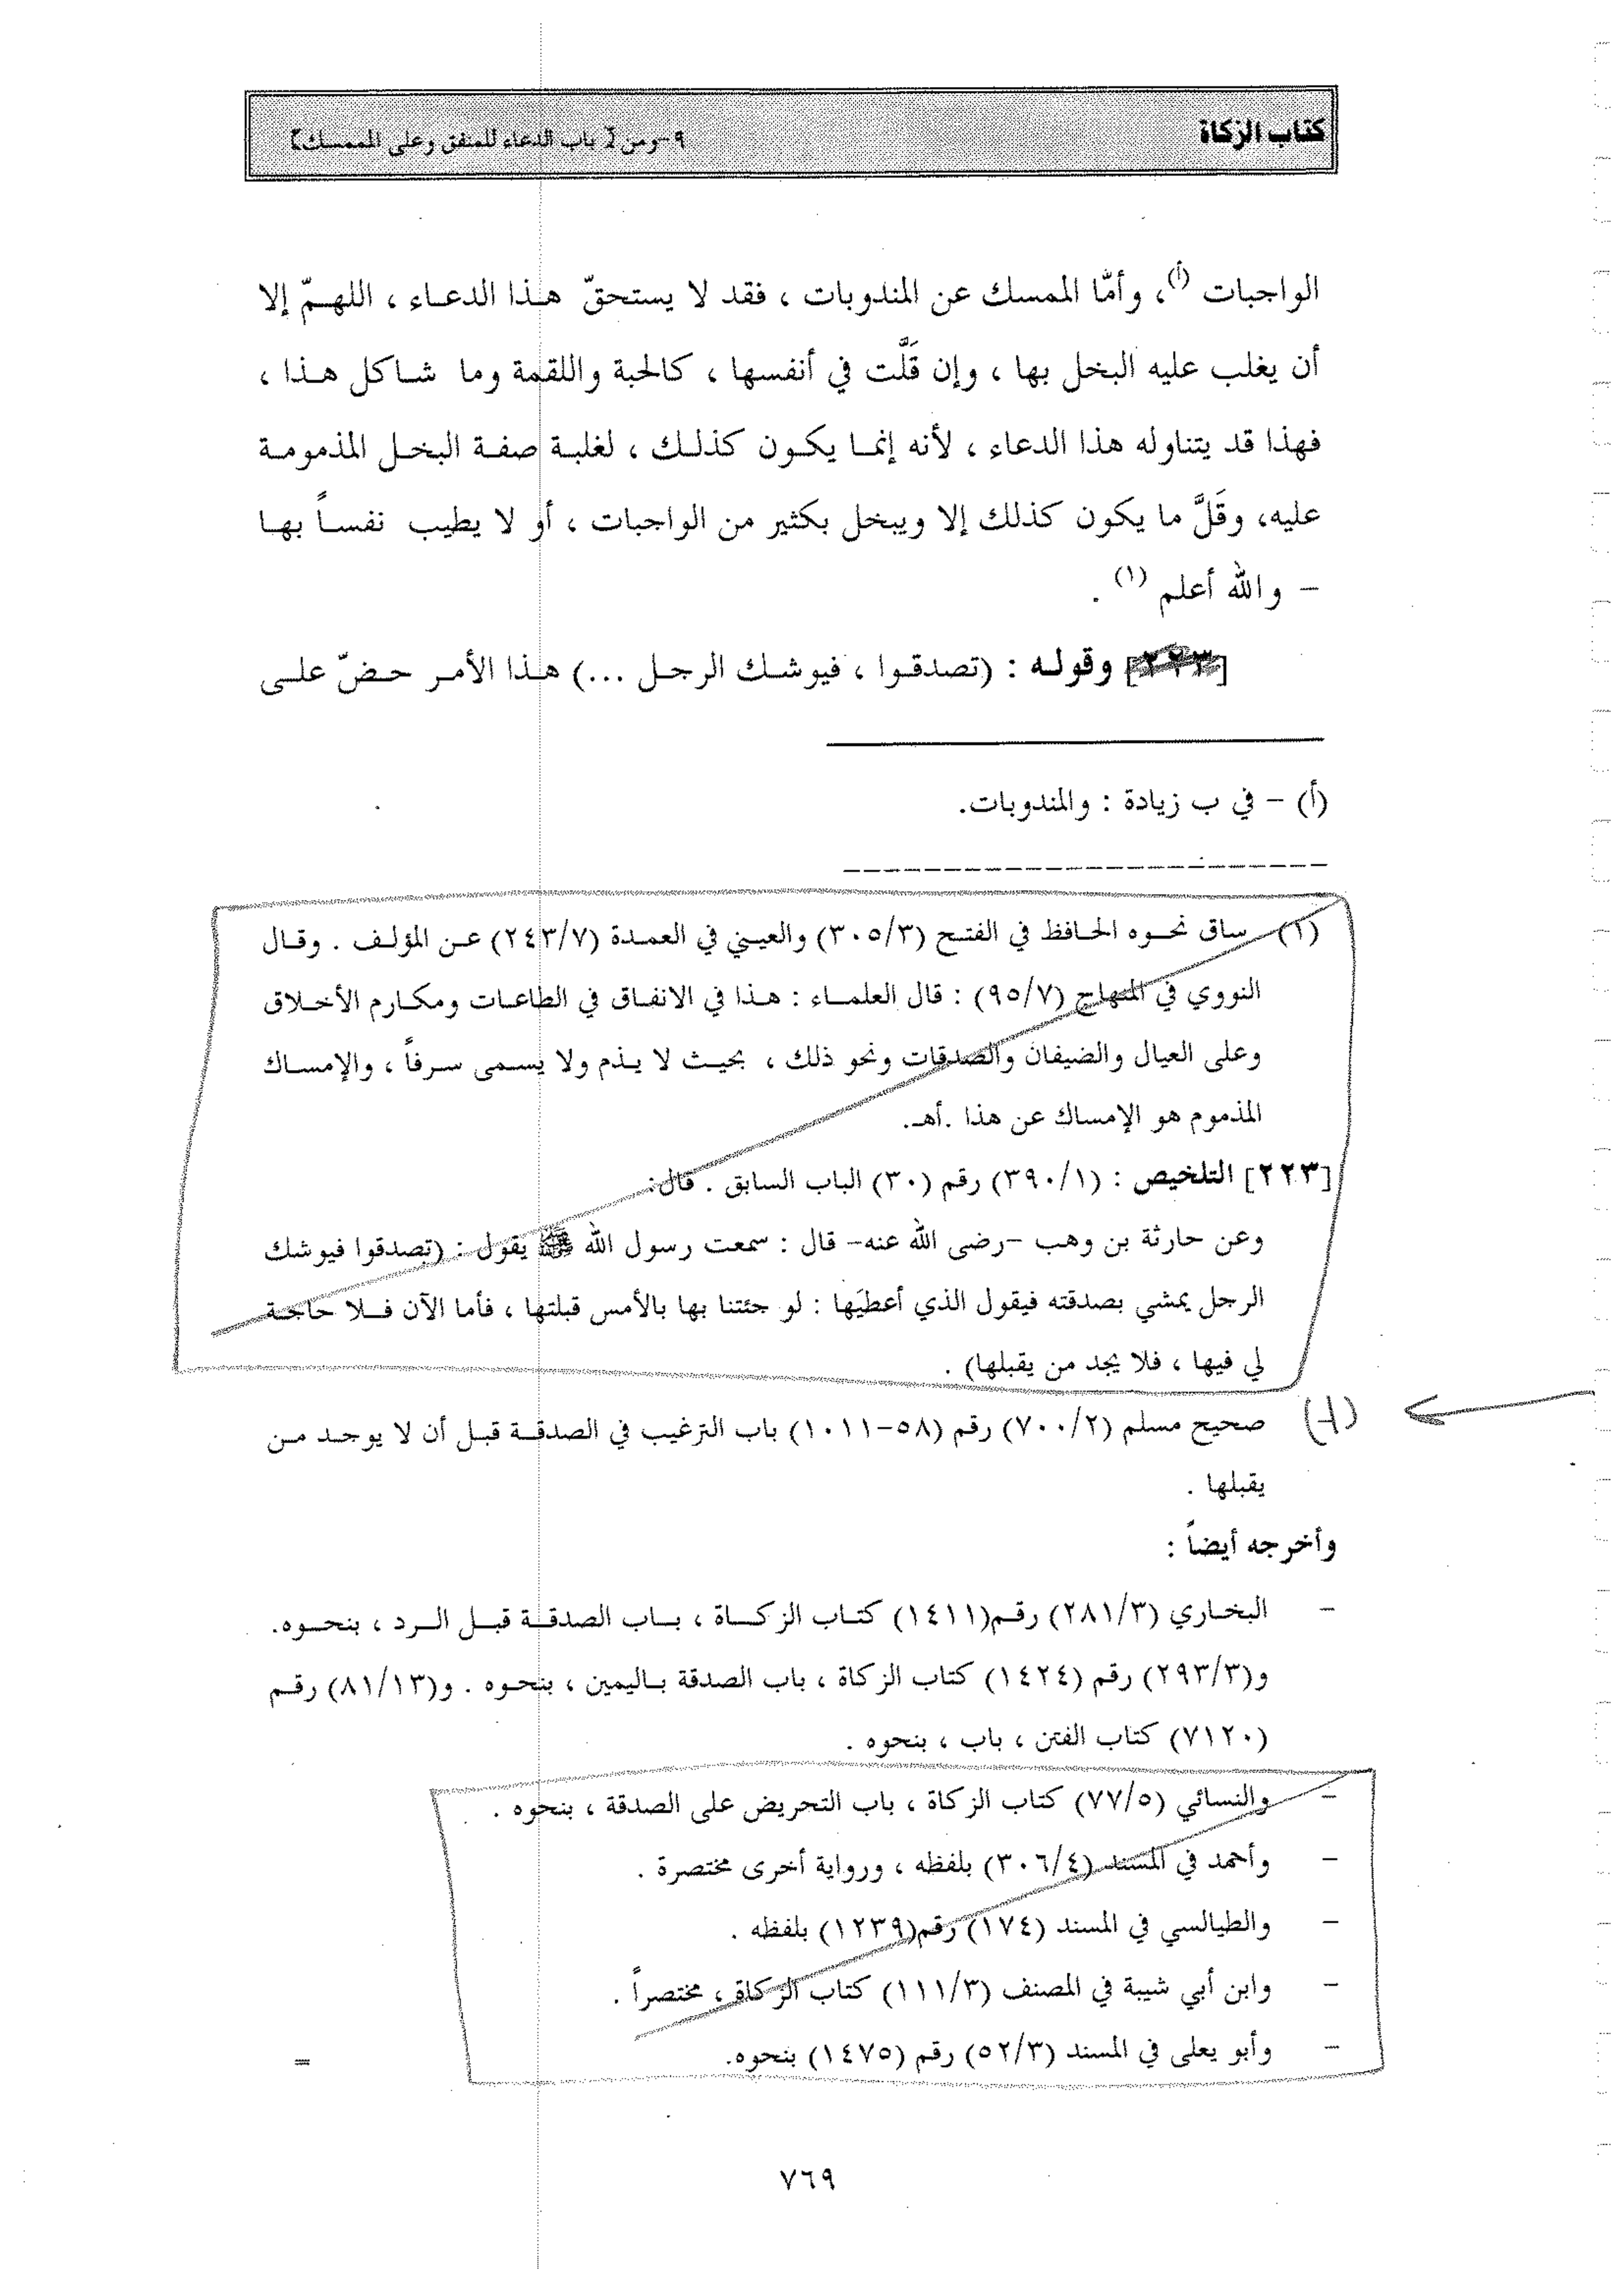 كتاب الزكاة
٩-ومن [ باب الدعاء للمنفق وعلى الممسك]
الواجبات (أ)، وأمّا الممسك عن المندوبات ، فقد لا يستحقّ هـذا الدعـاء ، اللهـمّ إلا
أن يغلب عليه البخل بها ، وإن قَلَّت في أنفسها ، كالحبة واللقمة وما شـاكل هـذا ،
فهذا قد يتناوله هذا الدعاء ، لأنه إنمـا يكـون كذلـك ، لغلبـة صفـة البخـل المذمومـة
عليه، وقَلَّ ما يكون كذلك إلا ويبخل بكثير من الواجبات ، أو لا يطيب نفسـاً بهـا
– والله أعلم (١) .
[٢٢٣] وقولـه : (تصدقـوا ، فيوشـك الرجـل ...) هـذا الأمـر حـضّ علـى
(أ) – في ب زيادة : والمندوبات.
(١) ساق نحـوه الحـافظ في الفتـح (٣٠٥/٣) والعيـني في العمـدة (٢٤٣/٧) عـن المؤلـف . وقـال
النووي في المنهاج (٩٥/٧) : قال العلمـاء : هـذا في الانفـاق في الطاعـات ومكـارم الأخـلاق
وعلى العيال والضيفان والصدقات ونحو ذلك ، بحيـث لا يـذم ولا يسـمى سـرفاً ، والإمسـاك
المذموم هو الإمساك عن هذا .أهـ.
[٢٢٣] التلخيص : (٣٩٠/١) رقم (٣٠) الباب السابق . قال:
وعن حارثة بن وهب –رضى الله عنه– قال : سمعت رسول الله ﷺ يقول : (تصدقوا فيوشك
الرجل يمشي بصدقته فيقول الذي أعطيَها : لو جئتنا بها بالأمس قبلتها ، فأما الآن فـلا حاجـة
لي فيها ، فلا يجد من يقبلها) .
صحيح مسلم (٧٠٠/٢) رقم (٥٨-١٠١١) باب الترغيب في الصدقـة قبـل أن لا يوجـد مـن
يقبلها .
وأخرجه أيضاً :
– البخـاري (٢٨١/٣) رقـم(١٤١١) كتـاب الزكـاة ، بـاب الصدقـة قبـل الـرد ، بنحـوه.
و(٢٩٣/٣) رقم (١٤٢٤) كتاب الزكاة ، باب الصدقة بـاليمين ، بنحـوه . و(٨١/١٣) رقـم
(٧١٢٠) كتاب الفتن ، باب ، بنحوه .
– والنسائي (٧٧/٥) كتاب الزكاة ، باب التحريض على الصدقة ، بنحوه .
– وأحمد في المسند (٣٠٦/٤) بلفظه ، ورواية أخرى مختصرة .
– والطيالسي في المسند (١٧٤) رقم(١٢٣٩) بلفظه .
– وابن أبي شيبة في المصنف (١١١/٣) كتاب الزكاة ، مختصراً .
– وأبو يعلى في المسند (٥٢/٣) رقم (١٤٧٥) بنحوه.
=
٧٦٩